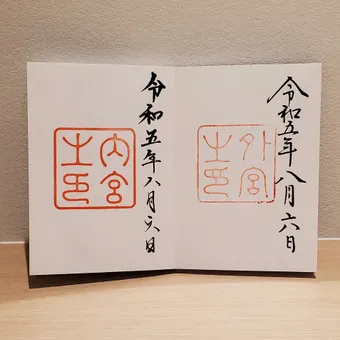 令和五年八月六日
外宮之印
令和五年八月六日
内宮之印